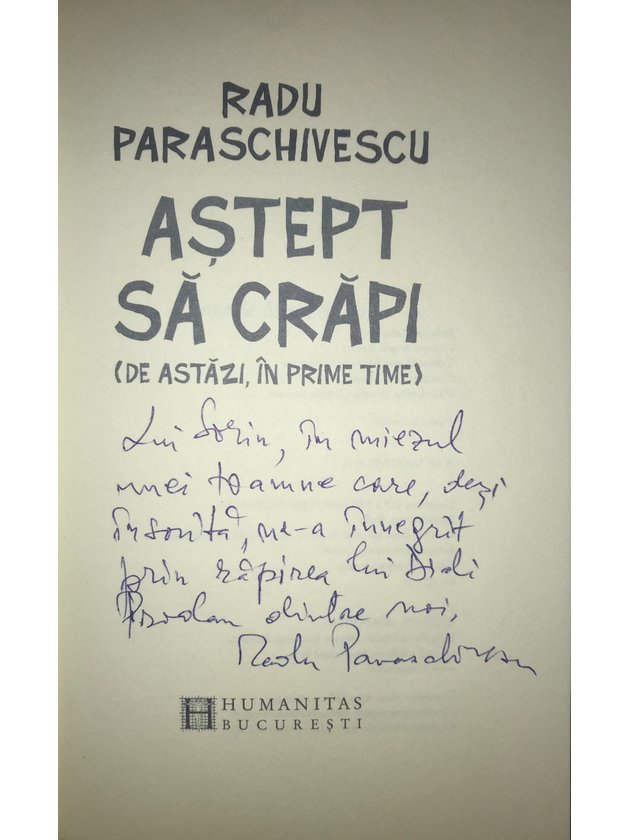 RADU
PARASCHIVESCU
AȘTEPT
SĂ CRĂPI
(DE ASTĂZI, ÎN PRIME TIME)
Lui Sorin, în miezul
unei toamne care, deși
însorită, ne-a înnegrit
prin răpirea lui Didi
Prodan dintre noi,
Radu Paraschivescu
H HUMANITAS
BUCUREȘTI